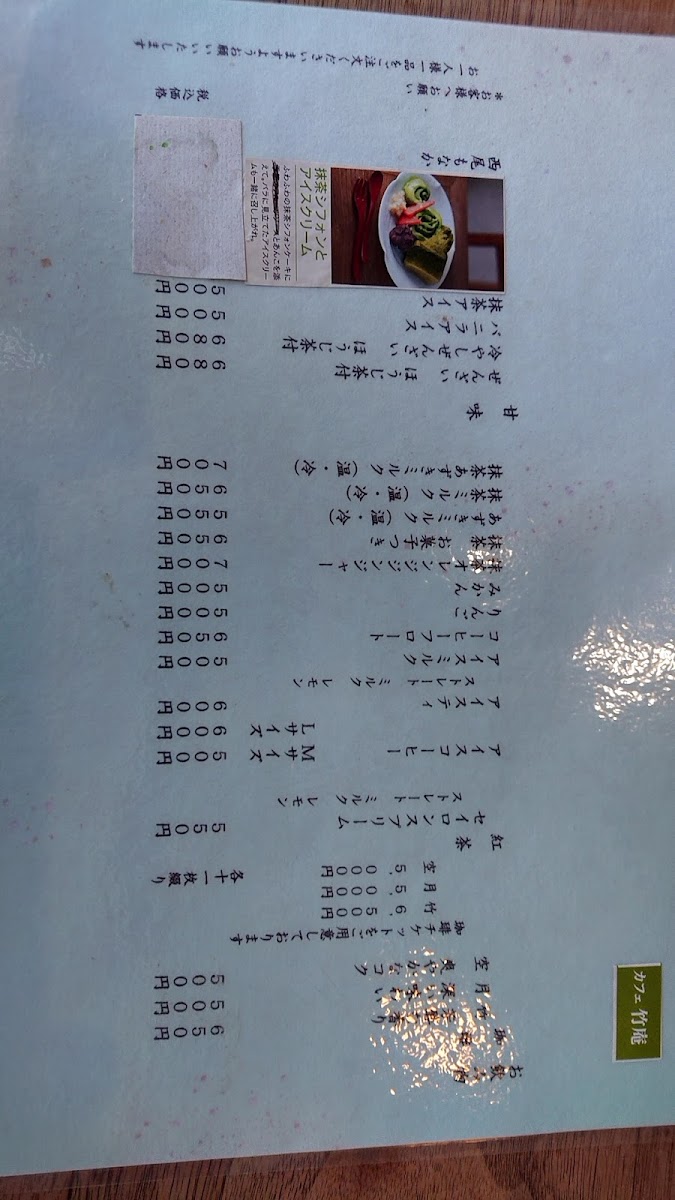 カフェ 竹庵
お飲み物
珈琲
竹 香り 650円
月 深い味わい 500円
空 爽やかなコク 500円
珈琲チケットをご用意しております
竹 6.500円
月 5.000円
空 5.000円
各十一枚綴り
紅茶
セイロンスプリーム 550円
ストレート ミルク レモン
アイスコーヒー Mサイズ 500円
Lサイズ 600円
アイスティ 600円
ストレート ミルク レモン
アイスミルク 500円
コーヒーフロート 650円
りんご 500円
みかん 500円
抹茶オレンジジンジャー 700円
抹茶 お菓子つき 650円
あずきミルク (温・冷) 550円
抹茶ミルク (温・冷) 650円
抹茶あずきミルク (温・冷) 700円
甘味
ぜんざい ほうじ茶付 680円
冷やしぜんざい ほうじ茶付 680円
バニラアイス 500円
抹茶アイス 500円
抹茶シフォンと
アイスクリーム
ふわふわの抹茶シフォンケーキに
とあんこを添
えて。バラに見立てたアイスクリー
ムも一緒に召し上がれ。
西尾もなか
税込価格
*お客様へお願い
お一人様一品をご注文くださいますようお願いいたします